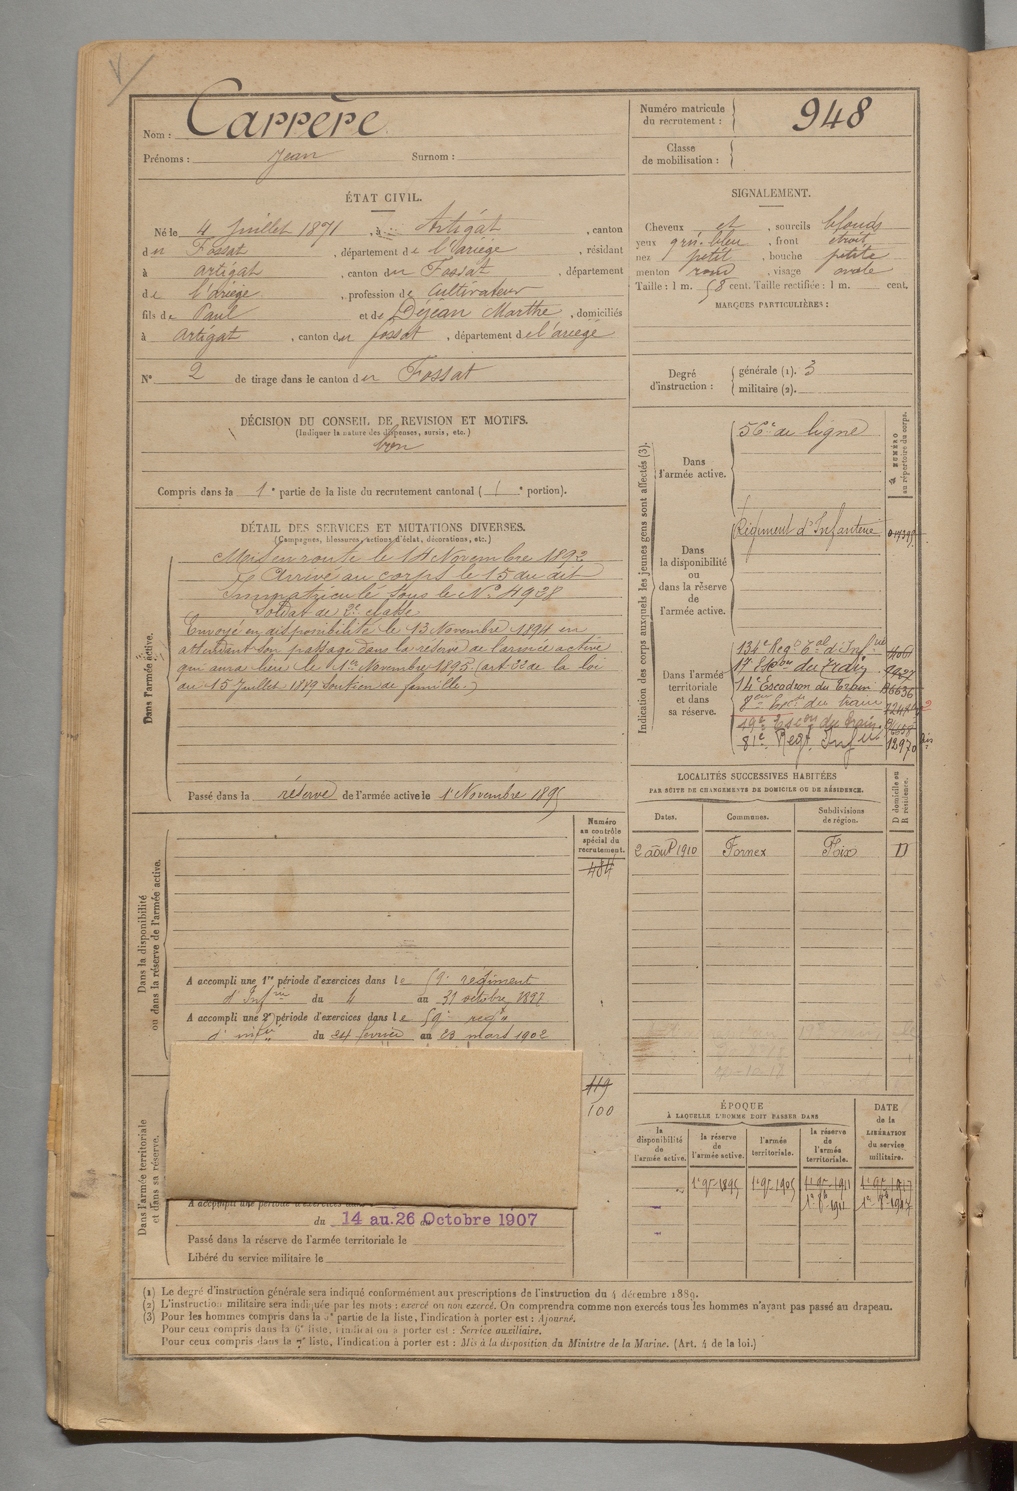 Nom : Carrère
Prénoms : Jean Surnom :
Numéro matricule du recrutement : 948
Classe de mobilisation :
ÉTAT CIVIL.
Né le 4 Juillet 1871, à Artigat, canton
du Fossat, département de l'Ariège, résidant
à Artigat, canton du Fossat, département
de l'ariège, profession de Cultivateur
fils de Paul et de Déjean Marthe, domiciliés
à Artigat, canton du fossat, département de l'ariège
N° 2 de tirage dans le canton du Fossat
SIGNALEMENT.
Cheveux et, sourcils blonds
yeux gris-bleu, front étroit
nez petit, bouche petite
menton rond, visage ovale
Taille : 1 m. 58 cent. Taille rectifiée : 1 m. cent.
MARQUES PARTICULIÈRES :
Degré d'instruction : générale (1). 3
militaire (2).
DÉCISION DU CONSEIL DE REVISION ET MOTIFS.
(Indiquer la nature des dispenses, sursis, etc.)
bon
Compris dans la 1e partie de la liste du recrutement cantonal ( 1e portion).
DÉTAIL DES SERVICES ET MUTATIONS DIVERSES.
(Campagnes, blessures, actions d'éclat, décorations, etc.)
Dans l'armée active.
Mis en route le 14 Novembre 1892
Arrivé au corps le 15 du dit
Immatriculé sous le N° 4938
Soldat de 2e classe
Envoyé en disponibilité le 13 Novembre 1894 en
attendant son passage dans la réserve de l'armée active
qui aura lieu le 1er Novembre 1895 (art. 22 de la loi
du 15 Juillet 1889 soutien de famille.)
Passé dans la réserve de l'armée active le 1 Novembre 1895
Indication des corps auxquels les jeunes gens sont affectés (3).
NUMÉRO au répertoire du corps.
Dans l'armée active.
de ligne
Dans la disponibilité ou dans la réserve de l'armée active.
Régiment d'Infanterie
Dans l'armée territoriale et dans sa réserve.
134e Regt
14e Escadron du Train 6636
du train
du Train
81e Regt Infie 12970
LOCALITÉS SUCCESSIVES HABITÉES
PAR SUITE DE CHANGEMENTS DE DOMICILE OU DE RÉSIDENCE.
D domicile ou R résidence.
Dates. Communes. Subdivisions de région.
2 août 1910 Fornex Foix D
Numéro au contrôle spécial du recrutement.
484
Dans la disponibilité ou dans la réserve de l'armée active.
A accompli une 1re période d'exercices dans le 59e régiment
d'Infrie du 4 au 31 octobre 1897
A accompli une 2e période d'exercices dans le 59e regt
d'infie du 24 février au 23 mars 1902
119
100
Dans l'armée territoriale et dans sa réserve.
A accompli une période d'exercices dans
du 14 au 26 Octobre 1907
Passé dans la réserve de l'armée territoriale le
Libéré du service militaire le
ÉPOQUE
À LAQUELLE L'HOMME DOIT PASSER DANS
la disponibilité de l'armée active.
la réserve de l'armée active.
l'armée territoriale.
la réserve de l'armée territoriale.
DATE de la LIBÉRATION du service militaire.
1er 9bre 1895 1er 9bre 1905 1er 9bre 1911 1er 9bre 1917
(1) Le degré d'instruction générale sera indiqué conformément aux prescriptions de l'instruction du 4 décembre 1889.
(2) L'instruction militaire sera indiquée par les mots : exercé ou non exercé. On comprendra comme non exercés tous les hommes n'ayant pas passé au drapeau.
(3) Pour les hommes compris dans la 5e partie de la liste, l'indication à porter est : Ajourné.
Pour ceux compris dans la 6e liste, l'indication à porter est : Service auxiliaire.
Pour ceux compris dans la 7e liste, l'indication à porter est : Mis à la disposition du Ministre de la Marine. (Art. 4 de la loi.)